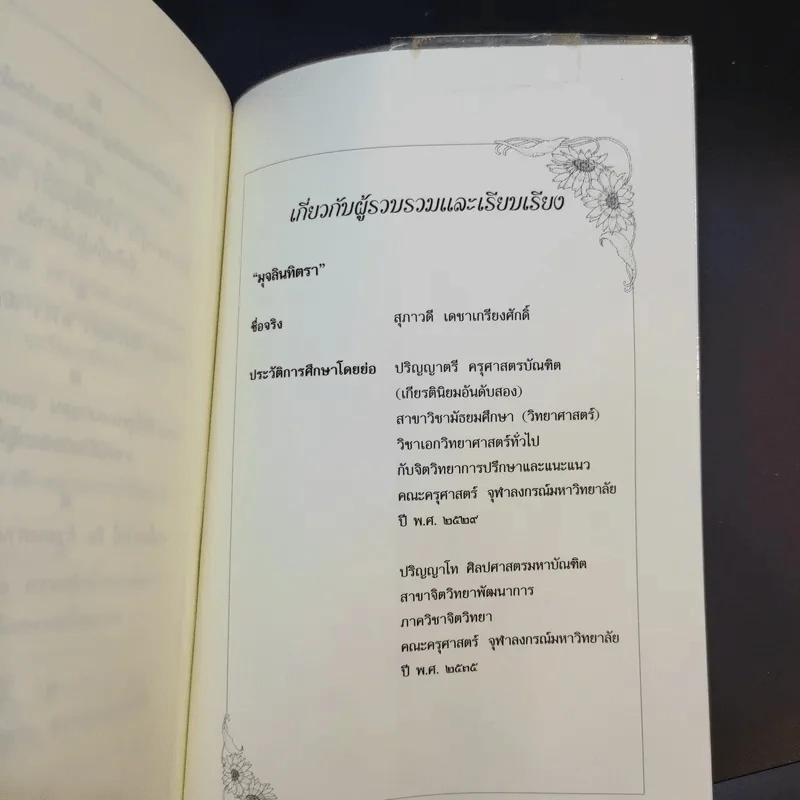 เกี่ยวกับผู้รวบรวมและเรียบเรียง
“มุจลินทิตรา”
ชื่อจริง สุภาวดี เดชาเกรียงศักดิ์
ประวัติการศึกษาโดยย่อ ปริญญาตรี ครุศาสตรบัณฑิต
(เกียรตินิยมอันดับสอง)
สาขาวิชามัธยมศึกษา (วิทยาศาสตร์)
วิชาเอกวิทยาศาสตร์ทั่วไป
กับจิตวิทยาการปรึกษาและแนะแนว
คณะครุศาสตร์ จุฬาลงกรณ์มหาวิทยาลัย
ปี พ.ศ. ๒๕๒๙
ปริญญาโท ศิลปศาสตรมหาบัณฑิต
สาขาจิตวิทยาพัฒนาการ
ภาควิชาจิตวิทยา
คณะครุศาสตร์ จุฬาลงกรณ์มหาวิทยาลัย
ปี พ.ศ. ๒๕๓๕